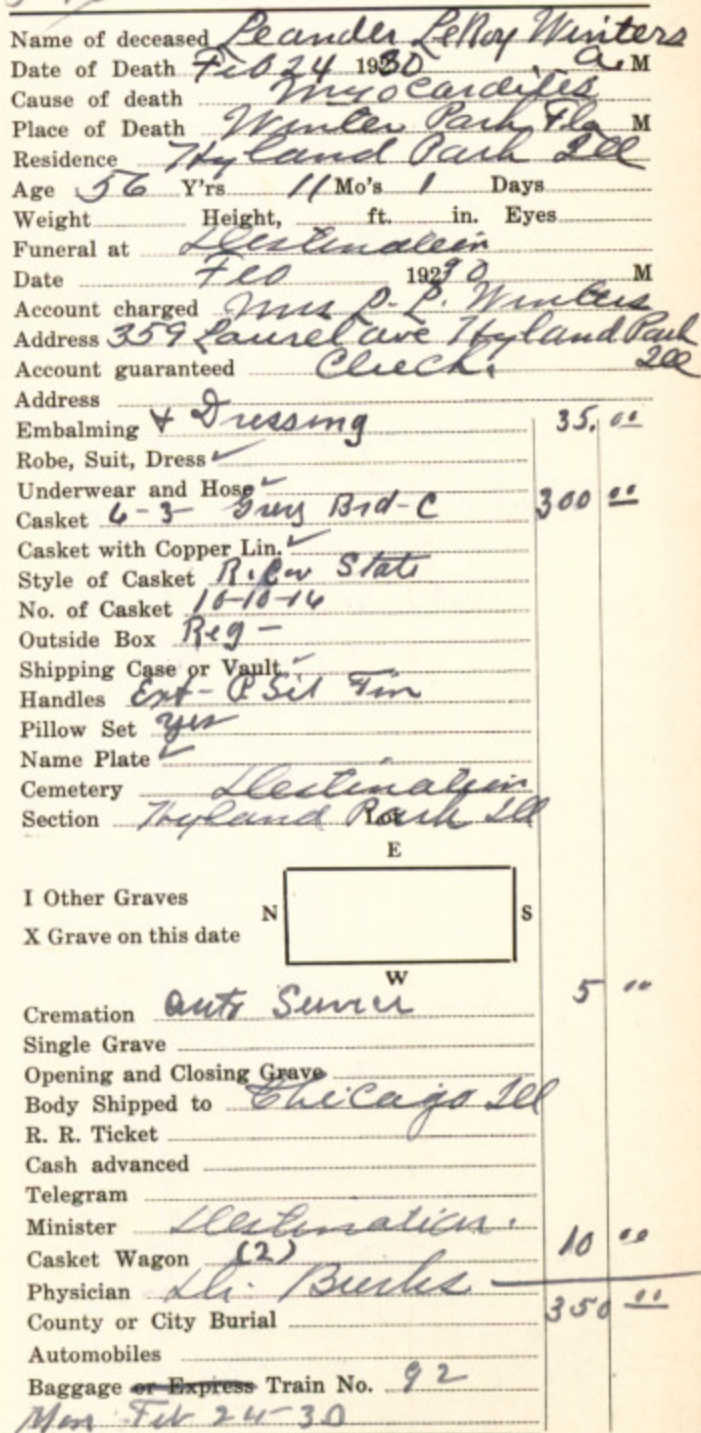 Name of deceased Leander LeRoy Winters
Date of Death Feb 24 1930 , a. M
Cause of death Myocardites
Place of Death Winter Park, Fla M
Residence Hyland Park Ill
Age 56 Y'rs 11 Mo's 1 Days
Weight Height, ft. in. Eyes
Funeral at Destination
Date Feb 1930 M
Account charged Mrs L. L. Winters
Address 359 Laurel ave Hyland Park Ill
Account guaranteed Check.
Address
Embalming & Dressing 35.00
Robe, Suit, Dress ✓
Underwear and Hose ✓
Casket 6-3 Grey Brd-C 300 00
Casket with Copper Lin. ✓
Style of Casket R. Cor State
No. of Casket 10-10-16
Outside Box Reg -
Shipping Case or Vault
Handles Ext- P Sil Fin
Pillow Set yes
Name Plate ✓
Cemetery Destination
Section Hyland Park Ill Lot
E
I Other Graves
N S
X Grave on this date
W
Cremation Auto Service 5 00
Single Grave
Opening and Closing Grave
Body Shipped to Chicago Ill
R. R. Ticket
Cash advanced
Telegram
Minister Destination.
Casket Wagon (2) 10 00
Physician Dr. Burks
County or City Burial 350 00
Automobiles
Baggage or Express Train No. 92
Mon Feb 24-30